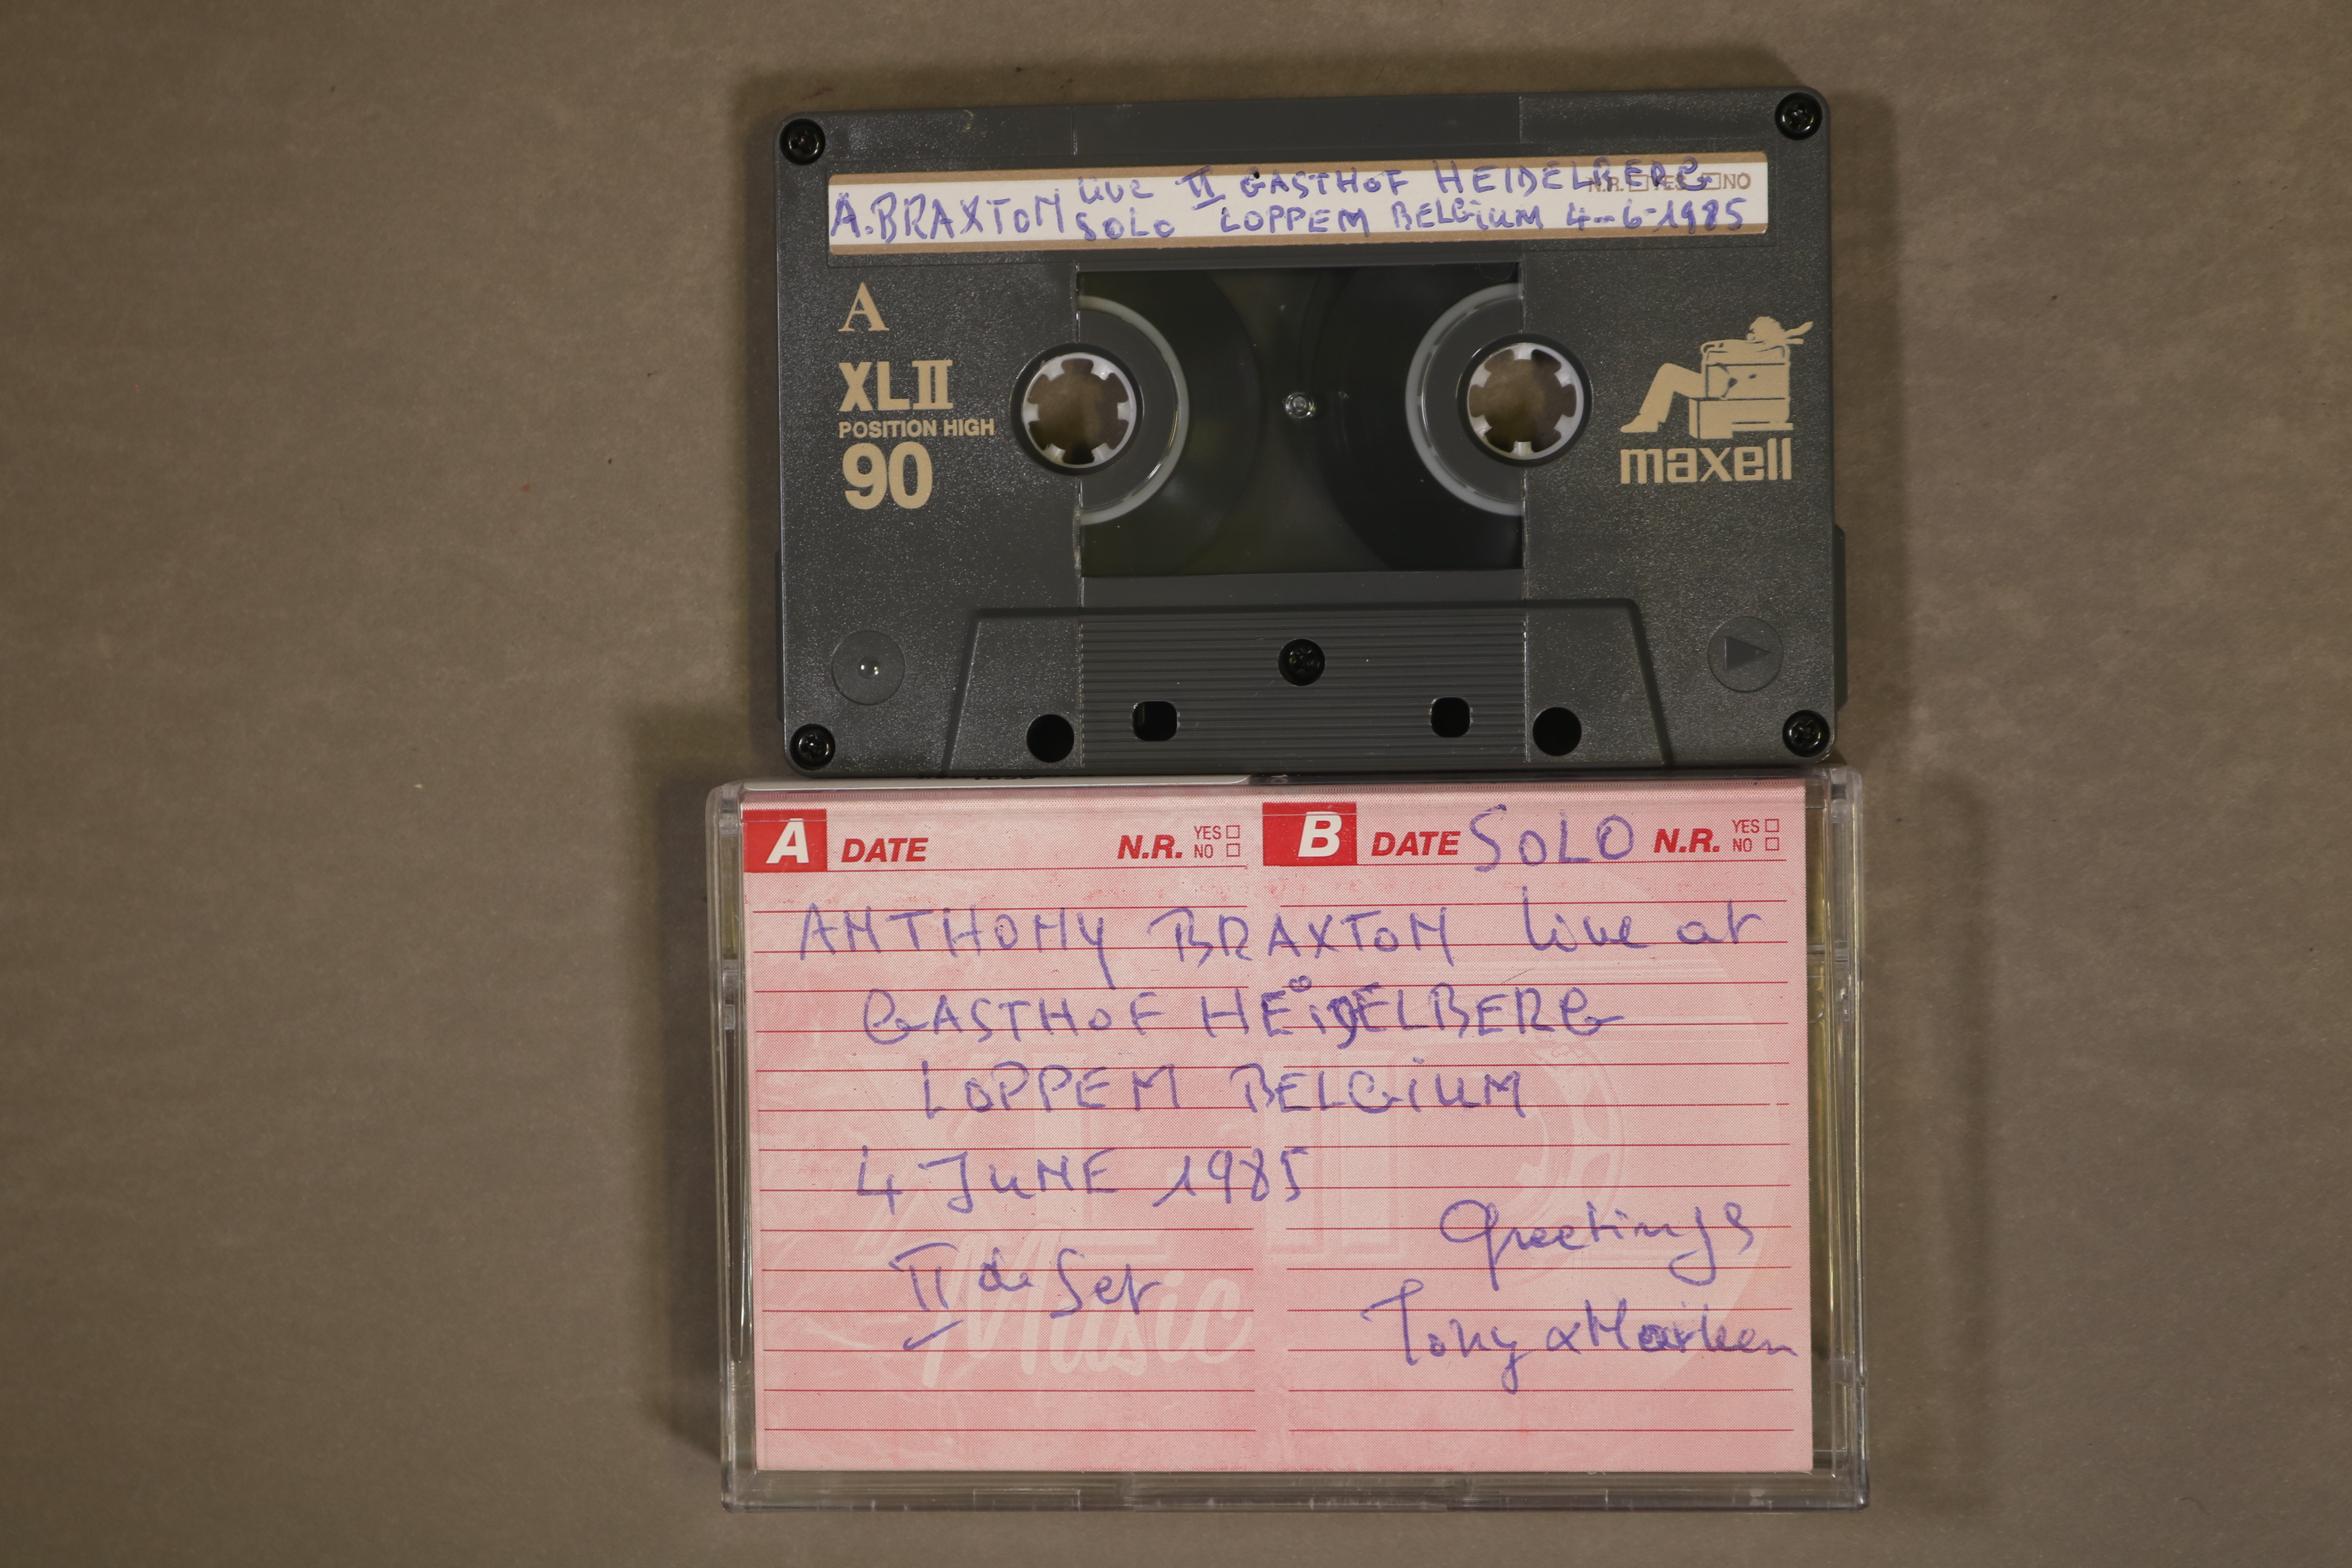 A.BRAXTON live II GASTHOF HEIDELBERG N.R. YES NO
SOLO LOPPEM BELGIUM 4-6-1985
A
XLII
POSITION HIGH
90
maxell
A DATE N.R. YES NO B DATE SOLO N.R. YES NO
ANTHONY BRAXTON live at
GASTHOF HEIDELBERG
LOPPEM BELGIUM
4 JUNE 1985
II de Set
Greetings
Tony & Marleen
Music